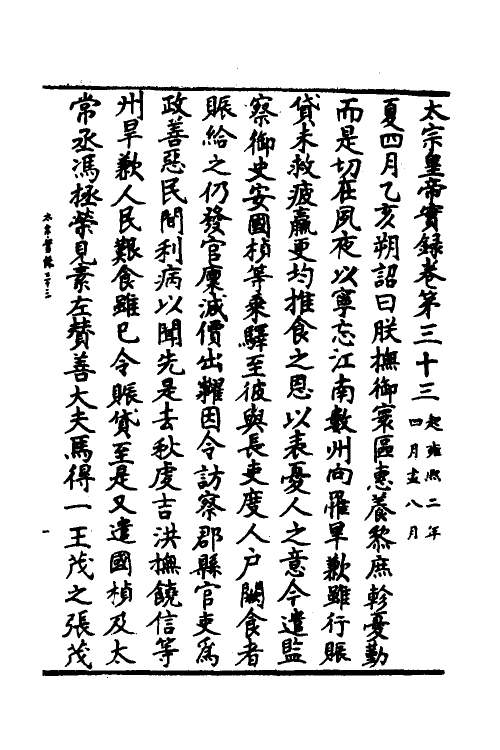 太宗皇帝實録卷第三十三 起雍熙二年
四月盡八月
夏四月乙亥朔詔曰朕撫御寰區惠養黎庶軫憂勤
而是切在夙夜以寧忘江南數州向罹旱歉雖行賑
貸未救疲羸更均推食之恩以表憂人之意今遣監
察御史安國楨等乗驛至彼與長吏度人户闕食者
賑給之仍發官廩減價出糶因令訪察郡縣官吏為
政善惡民間利病以聞先是去秋虔吉洪撫饒信等
州旱歉人民艱食雖已令賑貸至是又遣國楨及太
常丞馮拯榮見素左贊善大夫馬得一王茂之張茂
太宗實錄三十三
一